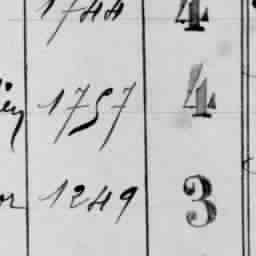 1744 4
1757 4
or 1249 3